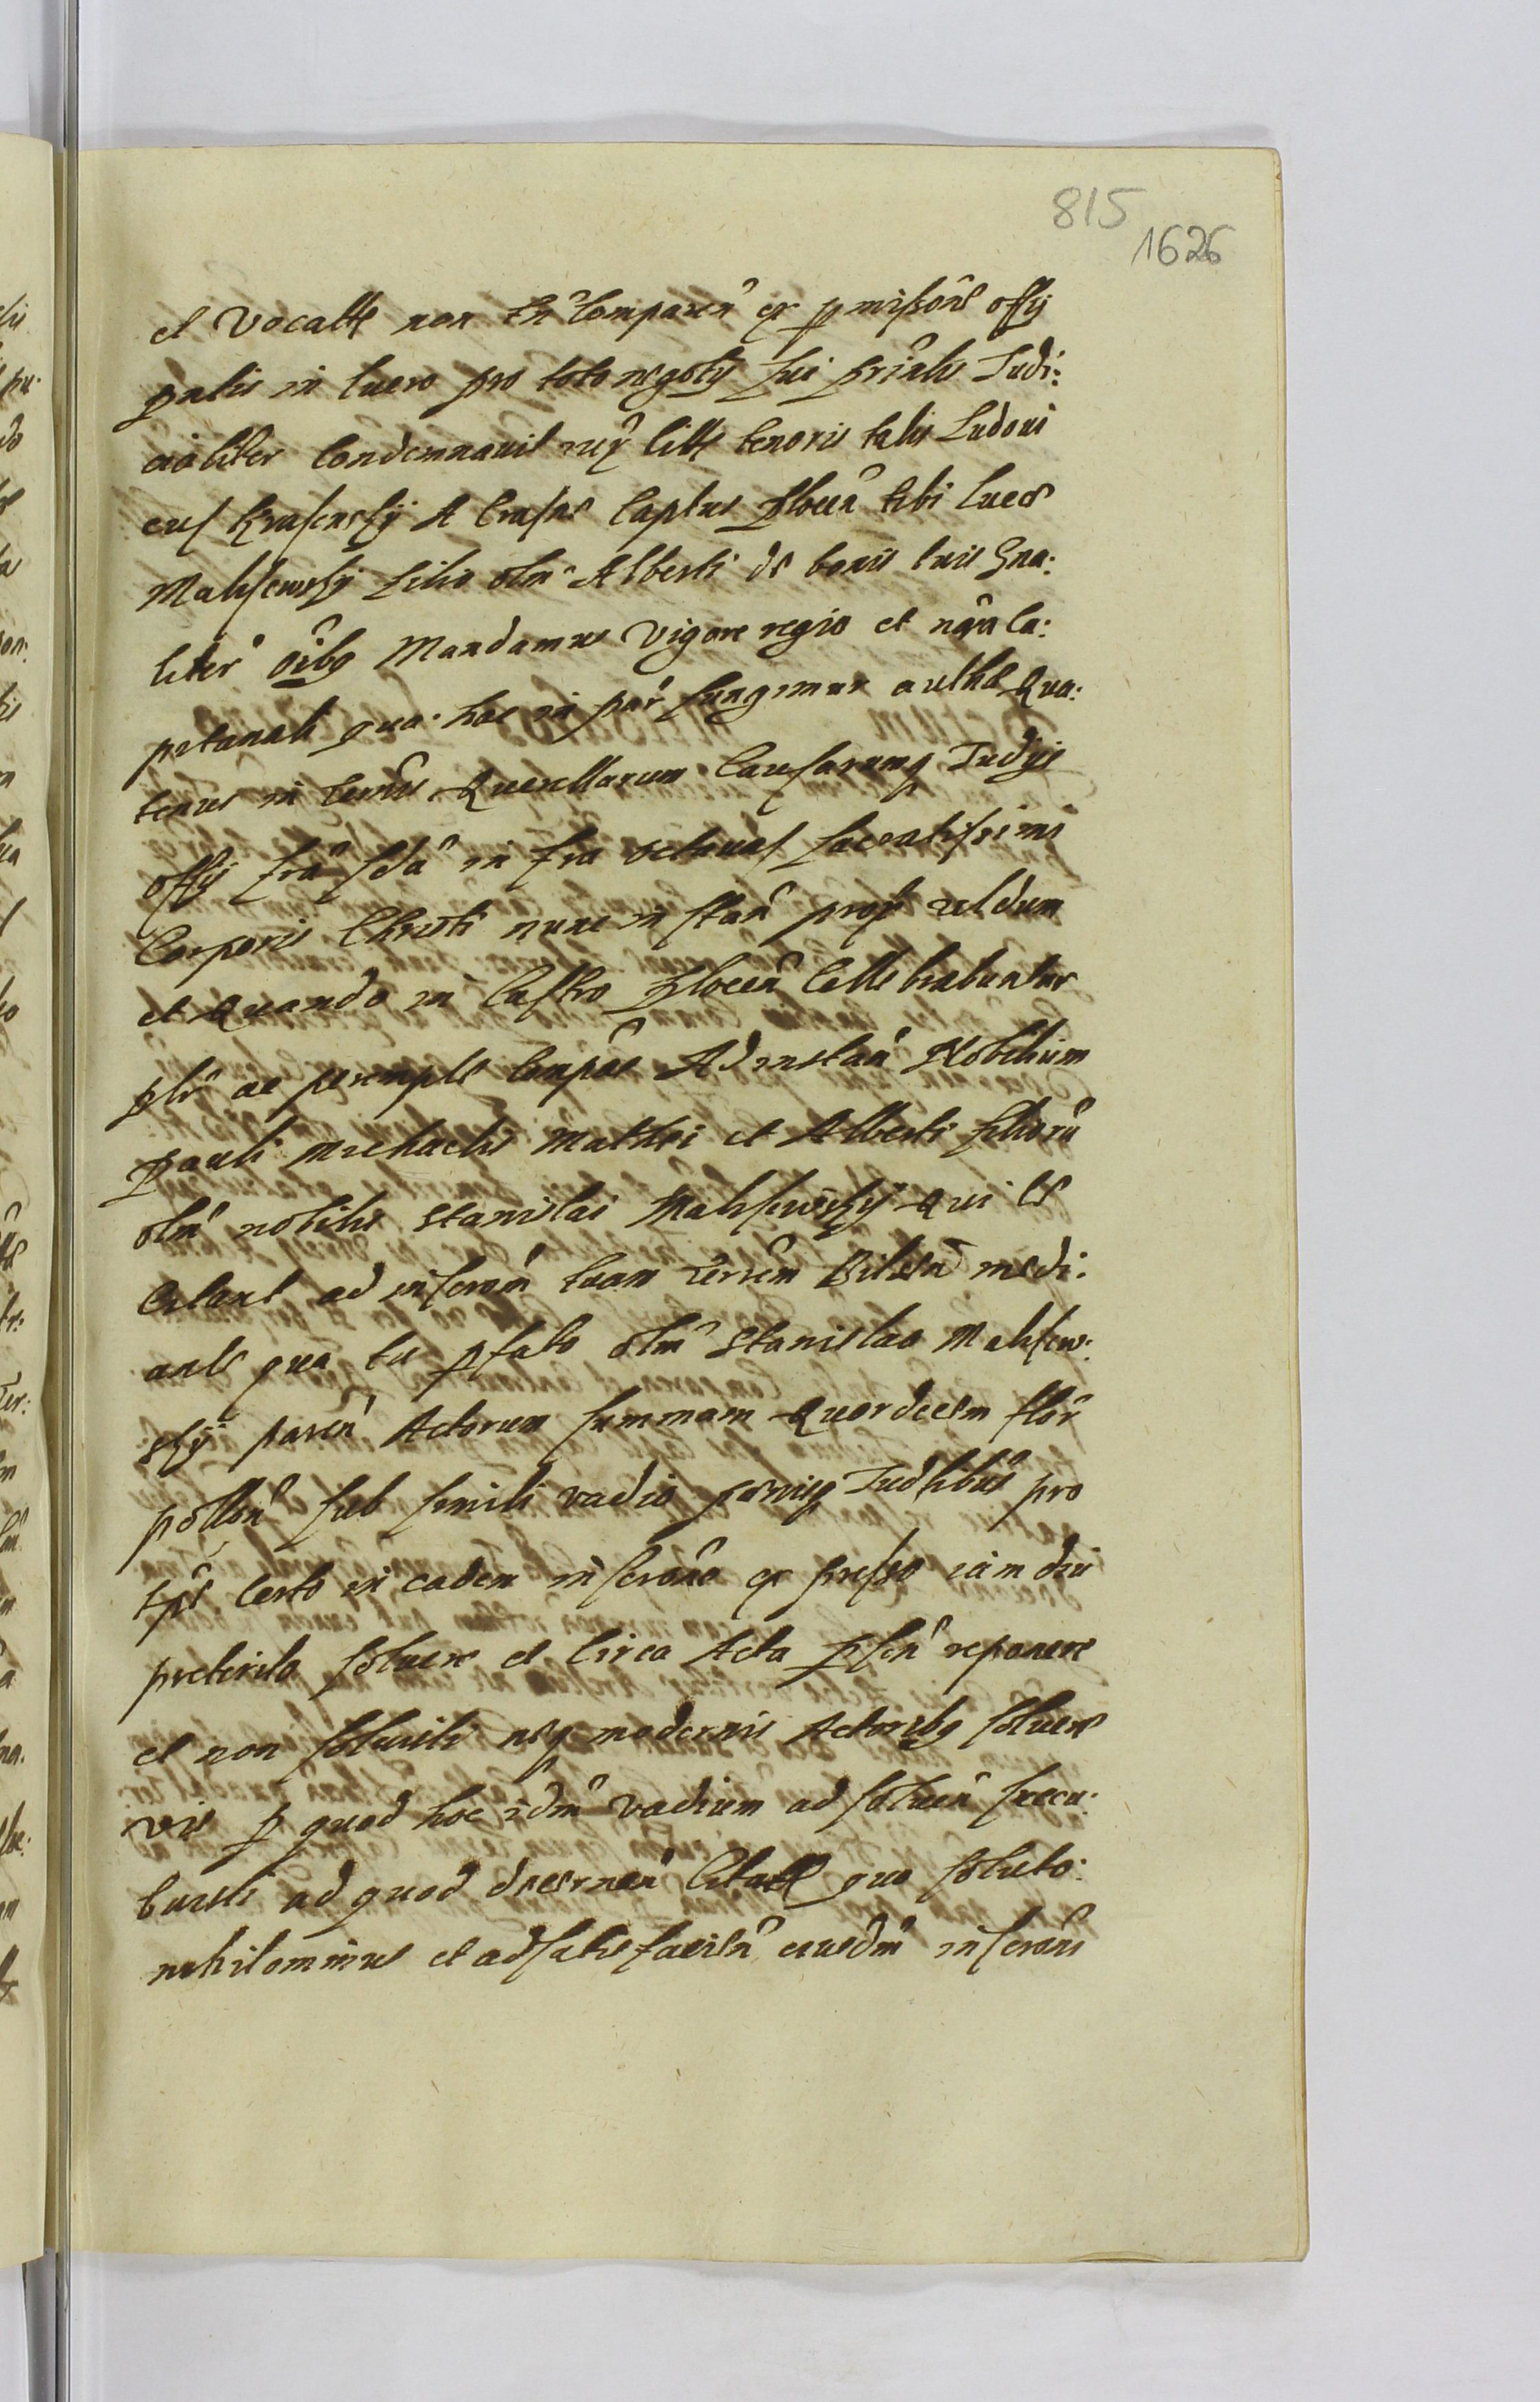 815
1626
et vocatt non tñ Comparen̄ ex p̱missõne offÿ
ꝑntis in lucro pro toto negotÿ sui prīnlis Judi:
cialiter Condemnauit cuꝰ litt tenoris talis Ludoui
cus Krasenskÿ A Crasne Captus Plocen̄ tibi Luce
Malusewskÿ filio olm̄ Alberti de bonis tuis Gna:
liter oībꝫ Mandamus Vigore regio et nr̄a Ca:
petanali qua hac in par̄ fungimur autthe Qua:
tenus in terīis Querellarum Causarumqꝫ Judÿs
offÿ fr̄a scda in fra octauas sacratissimi
Corporis Christi nunc in stan̄ prox celdum
et Quando in Castro Plocen̄ Cellebrabuntur
plr̄ ac perempte Compās Ad instan̄ Nobilium
pauli Michaelis Mathei et Alberti filiorū
olm̄ nobilis Stanislai Malusewskÿ Qui te
Citant ad inscrom̄ tuam Terrem̄ Bilsen̄ medi:
ante qua tu p̱fato olm̄ Stanislao Malusew:
skÿ paren̄ Actorum summam Quordecem flor̄
pollon̄ sub simili vadio penisqꝫ Judlibus pro
tpe Certo in eadem inscrõne ex presso iam diu
preterito soluere et Circa Acta p̱sen̄ reponere
et non soluisti neqꝫ modernis Actoribꝫ soluere
vis ꝑ quod hoc idm̄ vadium ad soluen̄ succu:
buisti ad quod decernen̄ Citatt quo soluto
nihilominus et ad satisfacien̄ eiusdm̄ inscrõni